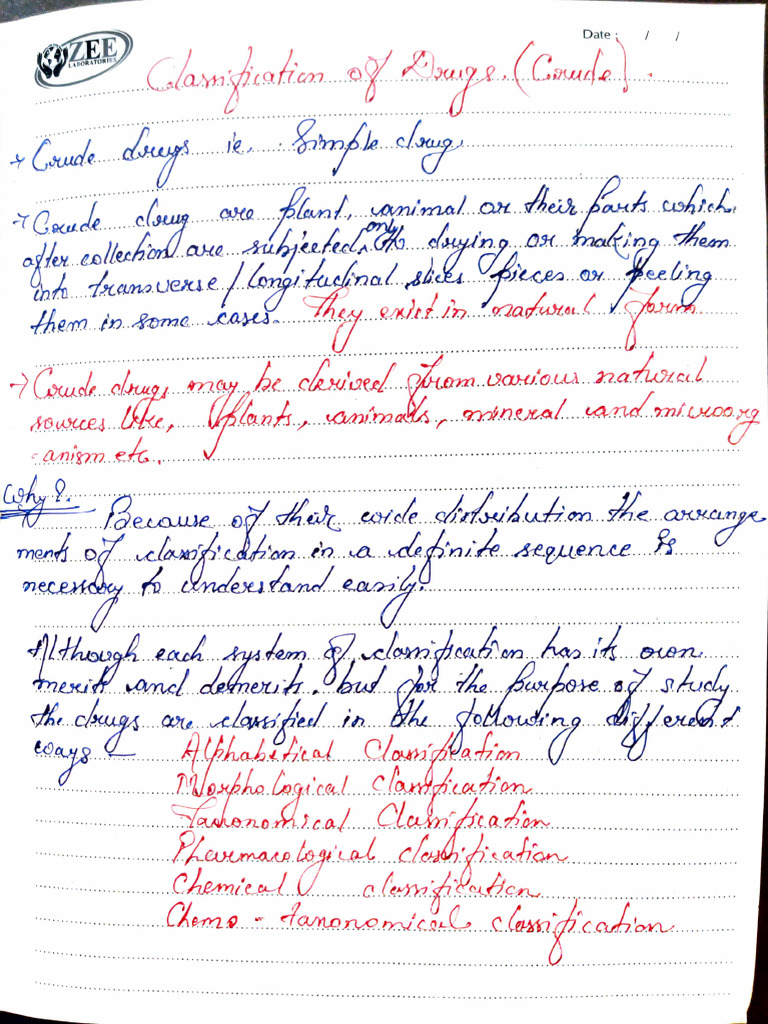 ZEE
LABORATORIES
Date : / /
Classification of Drugs. (Crude).
→ Crude drugs ie. Simple drug.
→ Crude drug are plant, animal or their parts which
after collection are subjected only to drying or making them
into transverse / longitudinal slices pieces or peeling
them in some cases. They exist in natural form
→ Crude drugs may be derived from various natural
sources like, plants, animals, mineral and microorg
anism etc.
Why ?.
Because of their wide distribution the arrange
ments of classification in a definite sequence is
necessary to understand easily.
Although each system of classification has its own
merits and demerits. but for the purpose of study
the drugs are classified in the following different
ways –
Alphabetical Classification
Morphological Classification
Taxonomical Classification
Pharmacological classification
Chemical classification
Chemo - taxonomical classification